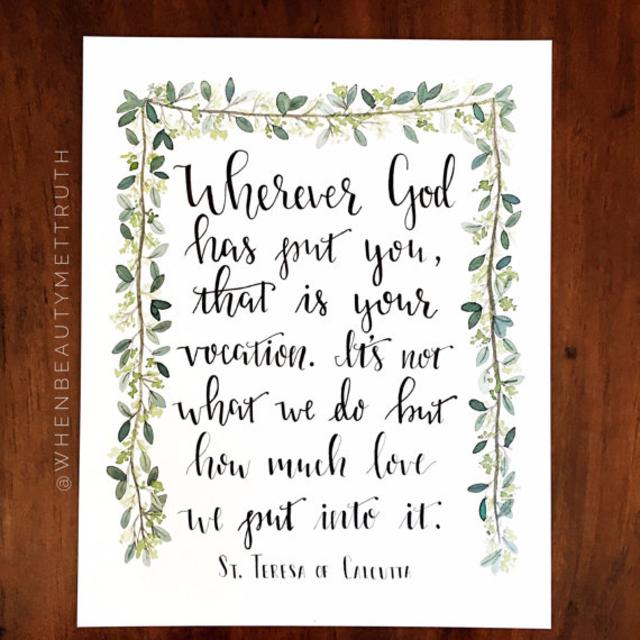 Wherever God
has put you,
that is your
vocation. It's not
what we do but
how much love
we put into it.
ST. TERESA OF CALCUTTA
@WHENBEAUTYMETTRUTH